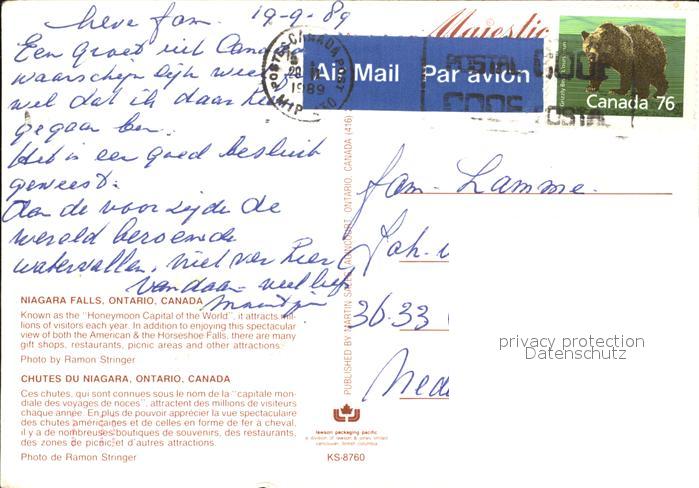 lieve fam. 19-9-89
Een groet uit Canada
waarschijnlijk weet
wel dat ik daar
gegaan ben.
Het is een goed besluit
geweest.
Aan de voorzijde de
wereld beroemde
watervallen, niet ver hier
vandaan. veel liefs
NIAGARA FALLS, ONTARIO, CANADA
Known as the "Honeymoon Capital of the World", it attracts mil-
lions of visitors each year. In addition to enjoying this spectacular
view of both the American & the Horseshoe Falls, there are many
gift shops, restaurants, picnic areas and other attractions.
Photo by Ramon Stringer
CHUTES DU NIAGARA, ONTARIO, CANADA
Ces chutes, qui sont connues sous le nom de la "capitale mon-
diale des voyages de noces", attractent des millions de visiteurs
chaque année. En plus de pouvoir apprécier la vue spectaculaire
des chutes américaines et de celles en forme de fer à cheval,
il y a de nombreuses boutiques de souvenirs, des restaurants,
des zones de picnic et d'autres attractions.
Photo de Ramon Stringer
PUBLISHED BY MARTIN ONTARIO, CANADA (416)
lawson packaging pacific
a division of lawson & jones limited
vancouver, british columbia
KS-8760
Majestic
Air Mail Par avion
CANADA POST
POSTES
20
1989
POSTAL CODE
CODE POSTAL
Grizzly Bear
Canada 76
fam. Lamme.
Joh.
36.33
Nede
privacy protection
Datenschutz